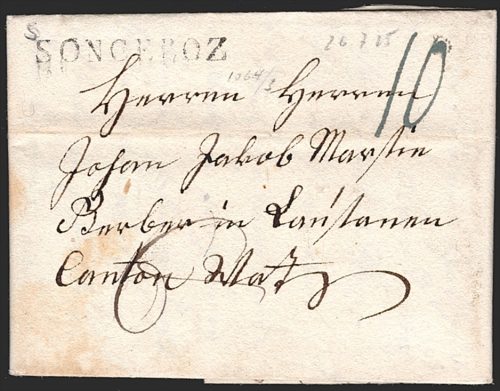 S
SONCEBOZ
26 7 15
10
1064/2
Herren Herren
Johan Jakob Marstie
Berber in Laüsanen
Canton Wat